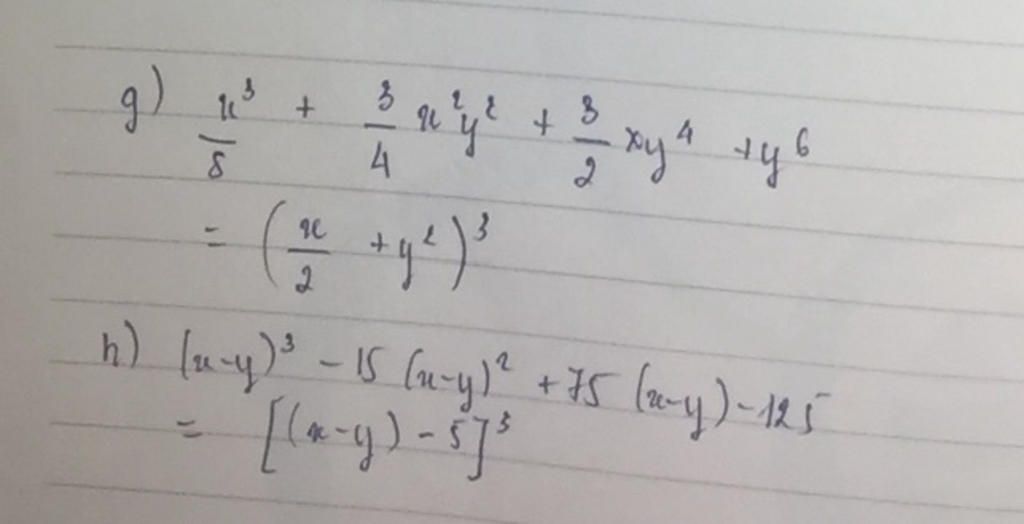 g) x³/8 + 3/4 x²y² + 3/2 xy⁴ + y⁶
= (x/2 + y²)³
h) (x-y)³ - 15 (x-y)² + 75 (x-y) - 125
= [(x-y) - 5]³